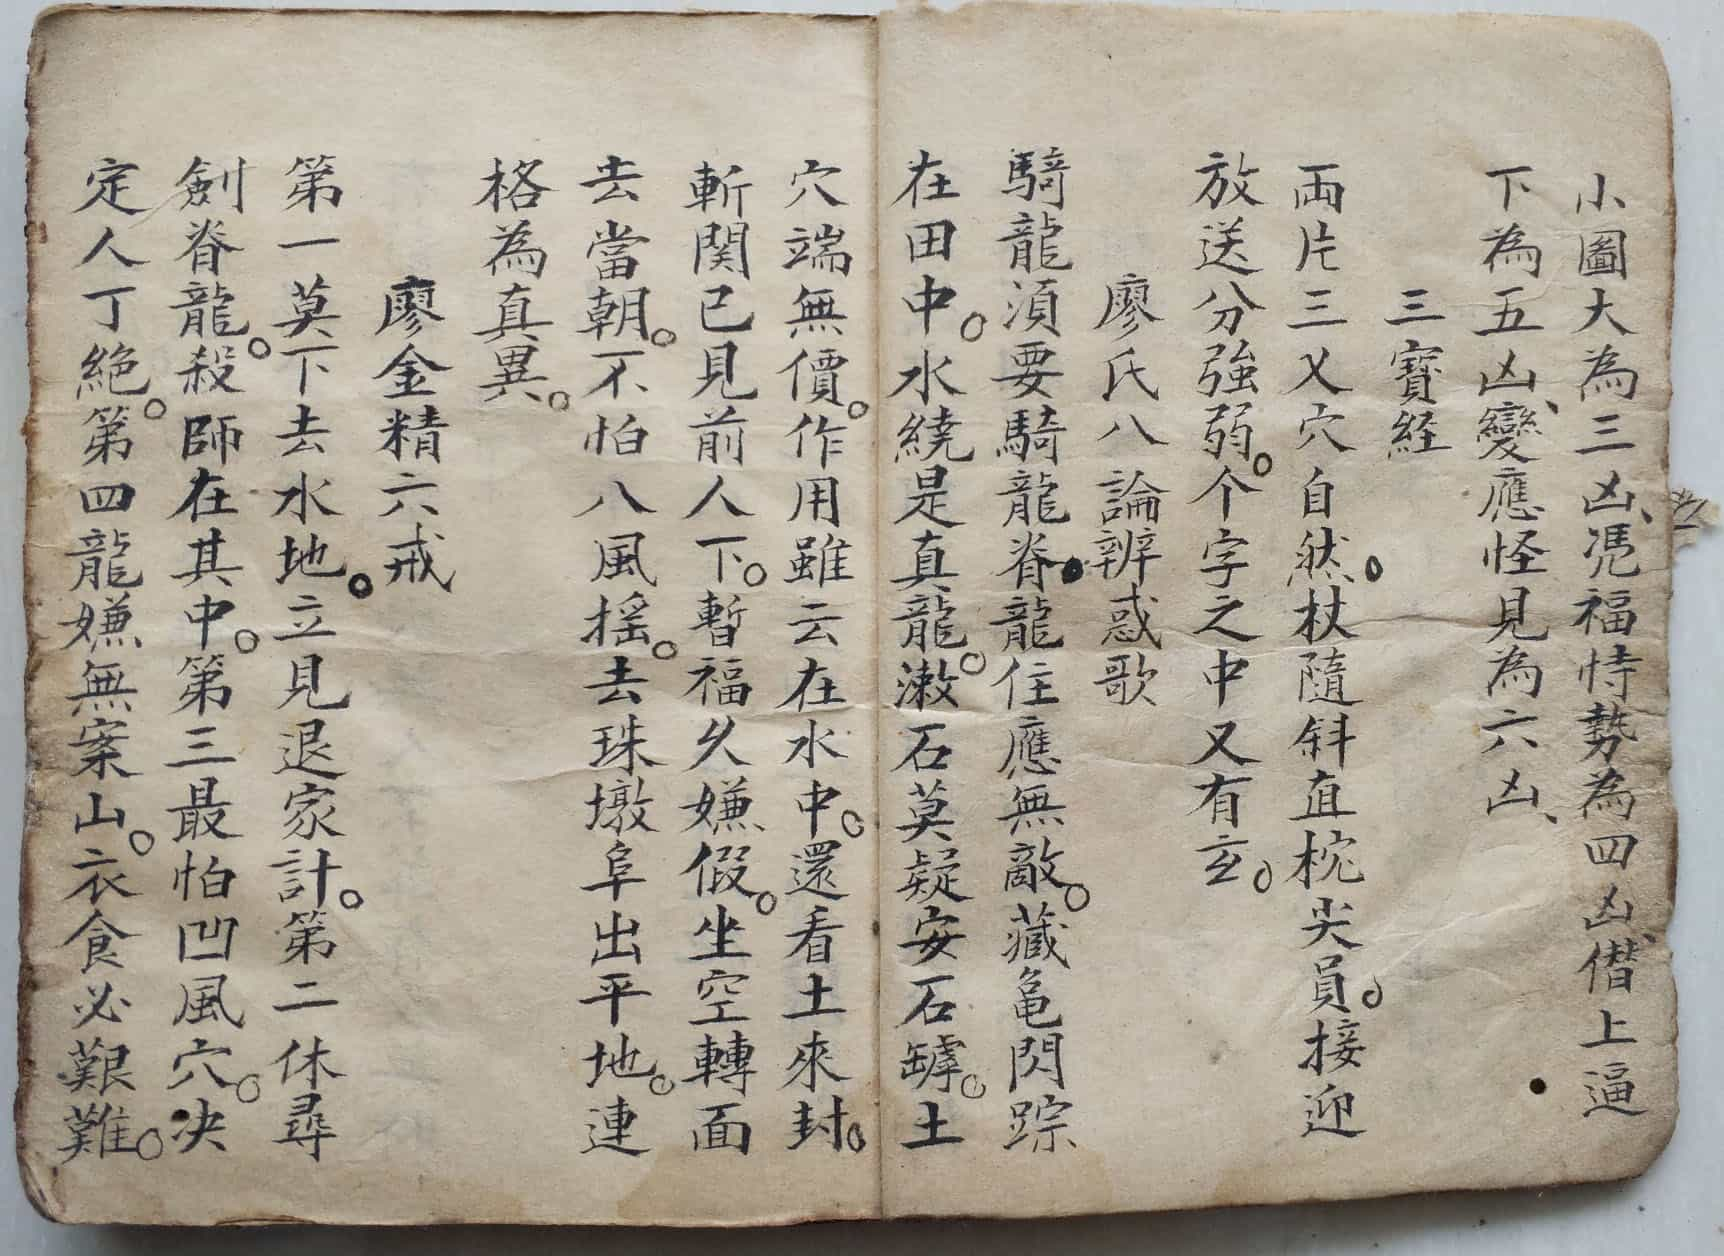 小圖大為三凶、凴福恃勢為四凶、僭上逼
下為五凶、變應怪見為六凶、
三寳経
両片三乂穴自然。杖隨斜直枕尖員。接迎
放送分強弱。个字之中又有玄。
廖氏八論辨惑歌
騎龍須要騎龍脊。龍住應無敵。藏亀閃踪
在田中。水繞是真龍。漱石莫疑安石罅。土
穴端無價。作用雖云在水中。還看土來封。
斬関已見前人下。暫福久嫌假。坐空轉面
去當朝。不怕八風摇。去珠墩阜出平地。連
格為真異。
廖金精六戒
第一莫下去水地。立見退家計。第二休尋
劍脊龍。殺師在其中。第三最怕凹風穴。决
定人丁絶。第四龍嫌無案山。衣食必艱難。